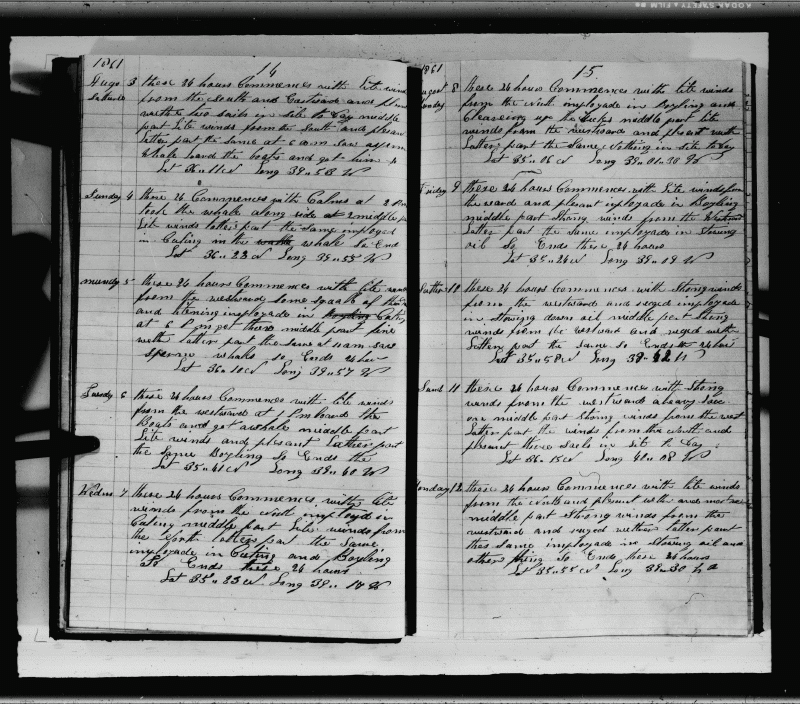 KODAK SAFETY FILM
1861
14
Augo 3 these 24 hours Commences with lite winds
Saturd from the South and Eastward and
with two sails in site to Day middle
part Lite winds from the South and pleasn
latter part the Same at 6 a m saw
Whale lowrd the boats and got him
Lat 36 11 N Long 39 " 58 W
Sunday 4 these 24 Commences with Calms at 2 Pm
took the whale along side at 2 middle p
Lite winds latter part the Same imployed
in Cuting in the whale So Ends
Lat 36 " 23 N Long 39 " 55 W
munday 5 these 24 hours Commences with lite winds
from the westward some squalls of
and litening imployade in Boyling
at 6 Pm got threw middle part fine
weth latter part the Same at 11 am saw
Sperm whals so Ends 24 hour
Lat 36 " 10 N Lonj 39 " 57 W
Tuesdy 6 these 24 hours Commences with lite winds
from the westward at 1 Pm lowrd the
Boats and got a whale middle part
Lite winds and plesant Latter part
the Same Boyling So Ends the
Lat 35 " 41 N Long 39 " 40 W
Wedns 7 these 24 hours Commences with lite
winds from the North imployd in
Cuting middle part Lite winds from
the North latter part the Same
imployade in Cuting and Boyling
So Ends these 24 hours
Lat 35 " 23 N Long 39 " 14 W
1861
15
August 8 these 24 hours Commences with lite winds
from the North imployade in Boyling and
Clearing up the Decks middle part lite
winds from the westward and plesant weth
Latter part the Same Nothing in site to Day
Lat 35 " 06 N Long 39 " 01 " 30 W
Friday 9 these 24 hours Commences with Lite winds from
the ward and plesant imployade in Boyling
middle part Strong winds from the Westward
latter part the Same imployade in Stowing
oil So Ends these 24 hours
Lat 35 " 24 N Long 39 " 09 W
Satter 10 these 24 hours Commences with Strong winds
from the westward and ruged imployade
in Stowing down oil middle part Strong
winds from the westward and ruged weth
Lattery part the Same So Ends 24 hours
Lat 35 " 58 N Long 39 " 42 11 W
Sund 11 these 24 hours Commences with Strong
winds from the westward a heavy Sea
on middle part Strong winds from the west
Latter part the winds from the North and
plesant three Sails in Site to Day
Lat 36 " 15 N Long 40 " 08 W
monday 12 these 24 hours Commences with lite winds
from the North and plesant weth and
middle part Strong winds from the
westward and ruged wether latter part
the Same imployade in Stowing oil and
other thing So Ends these 24 hours
Lat 35 " 55 N Long 39 " 30 W